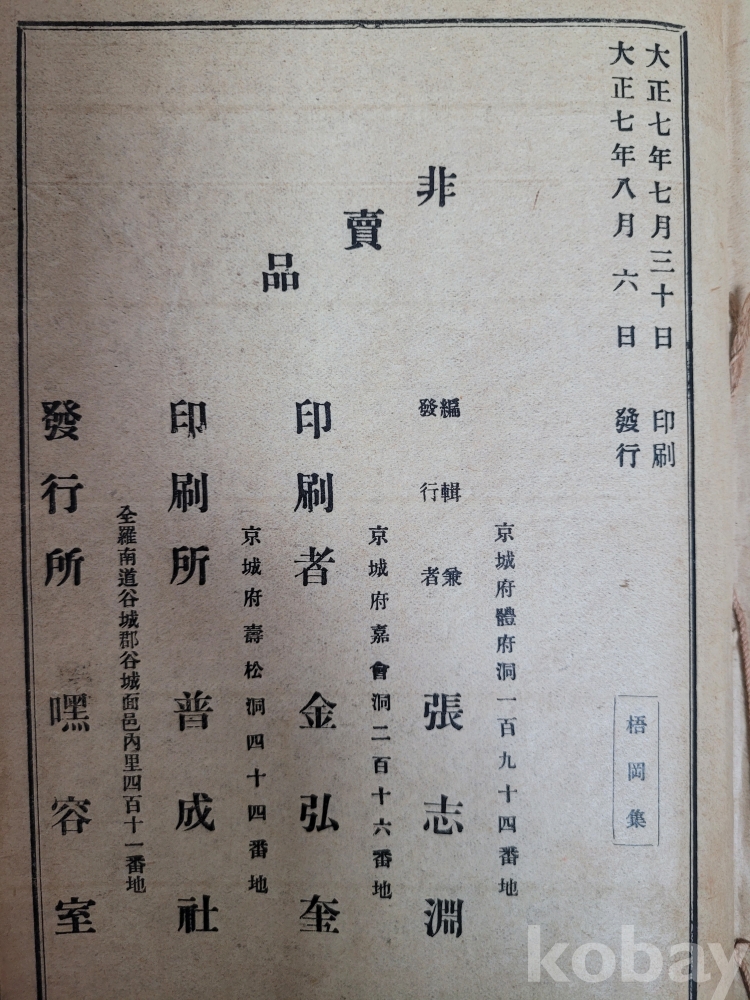 大正七年七月三十日 印刷
大正七年八月六日 發行
梧岡集
非賣品
京城府體府洞一百九十四番地
編輯兼
發行者
張志淵
京城府嘉會洞二百十六番地
印刷者 金弘奎
京城府壽松洞四十四番地
印刷所 普成社
全羅南道谷城郡谷城面邑內里四百十一番地
發行所 嘿容室
kobay